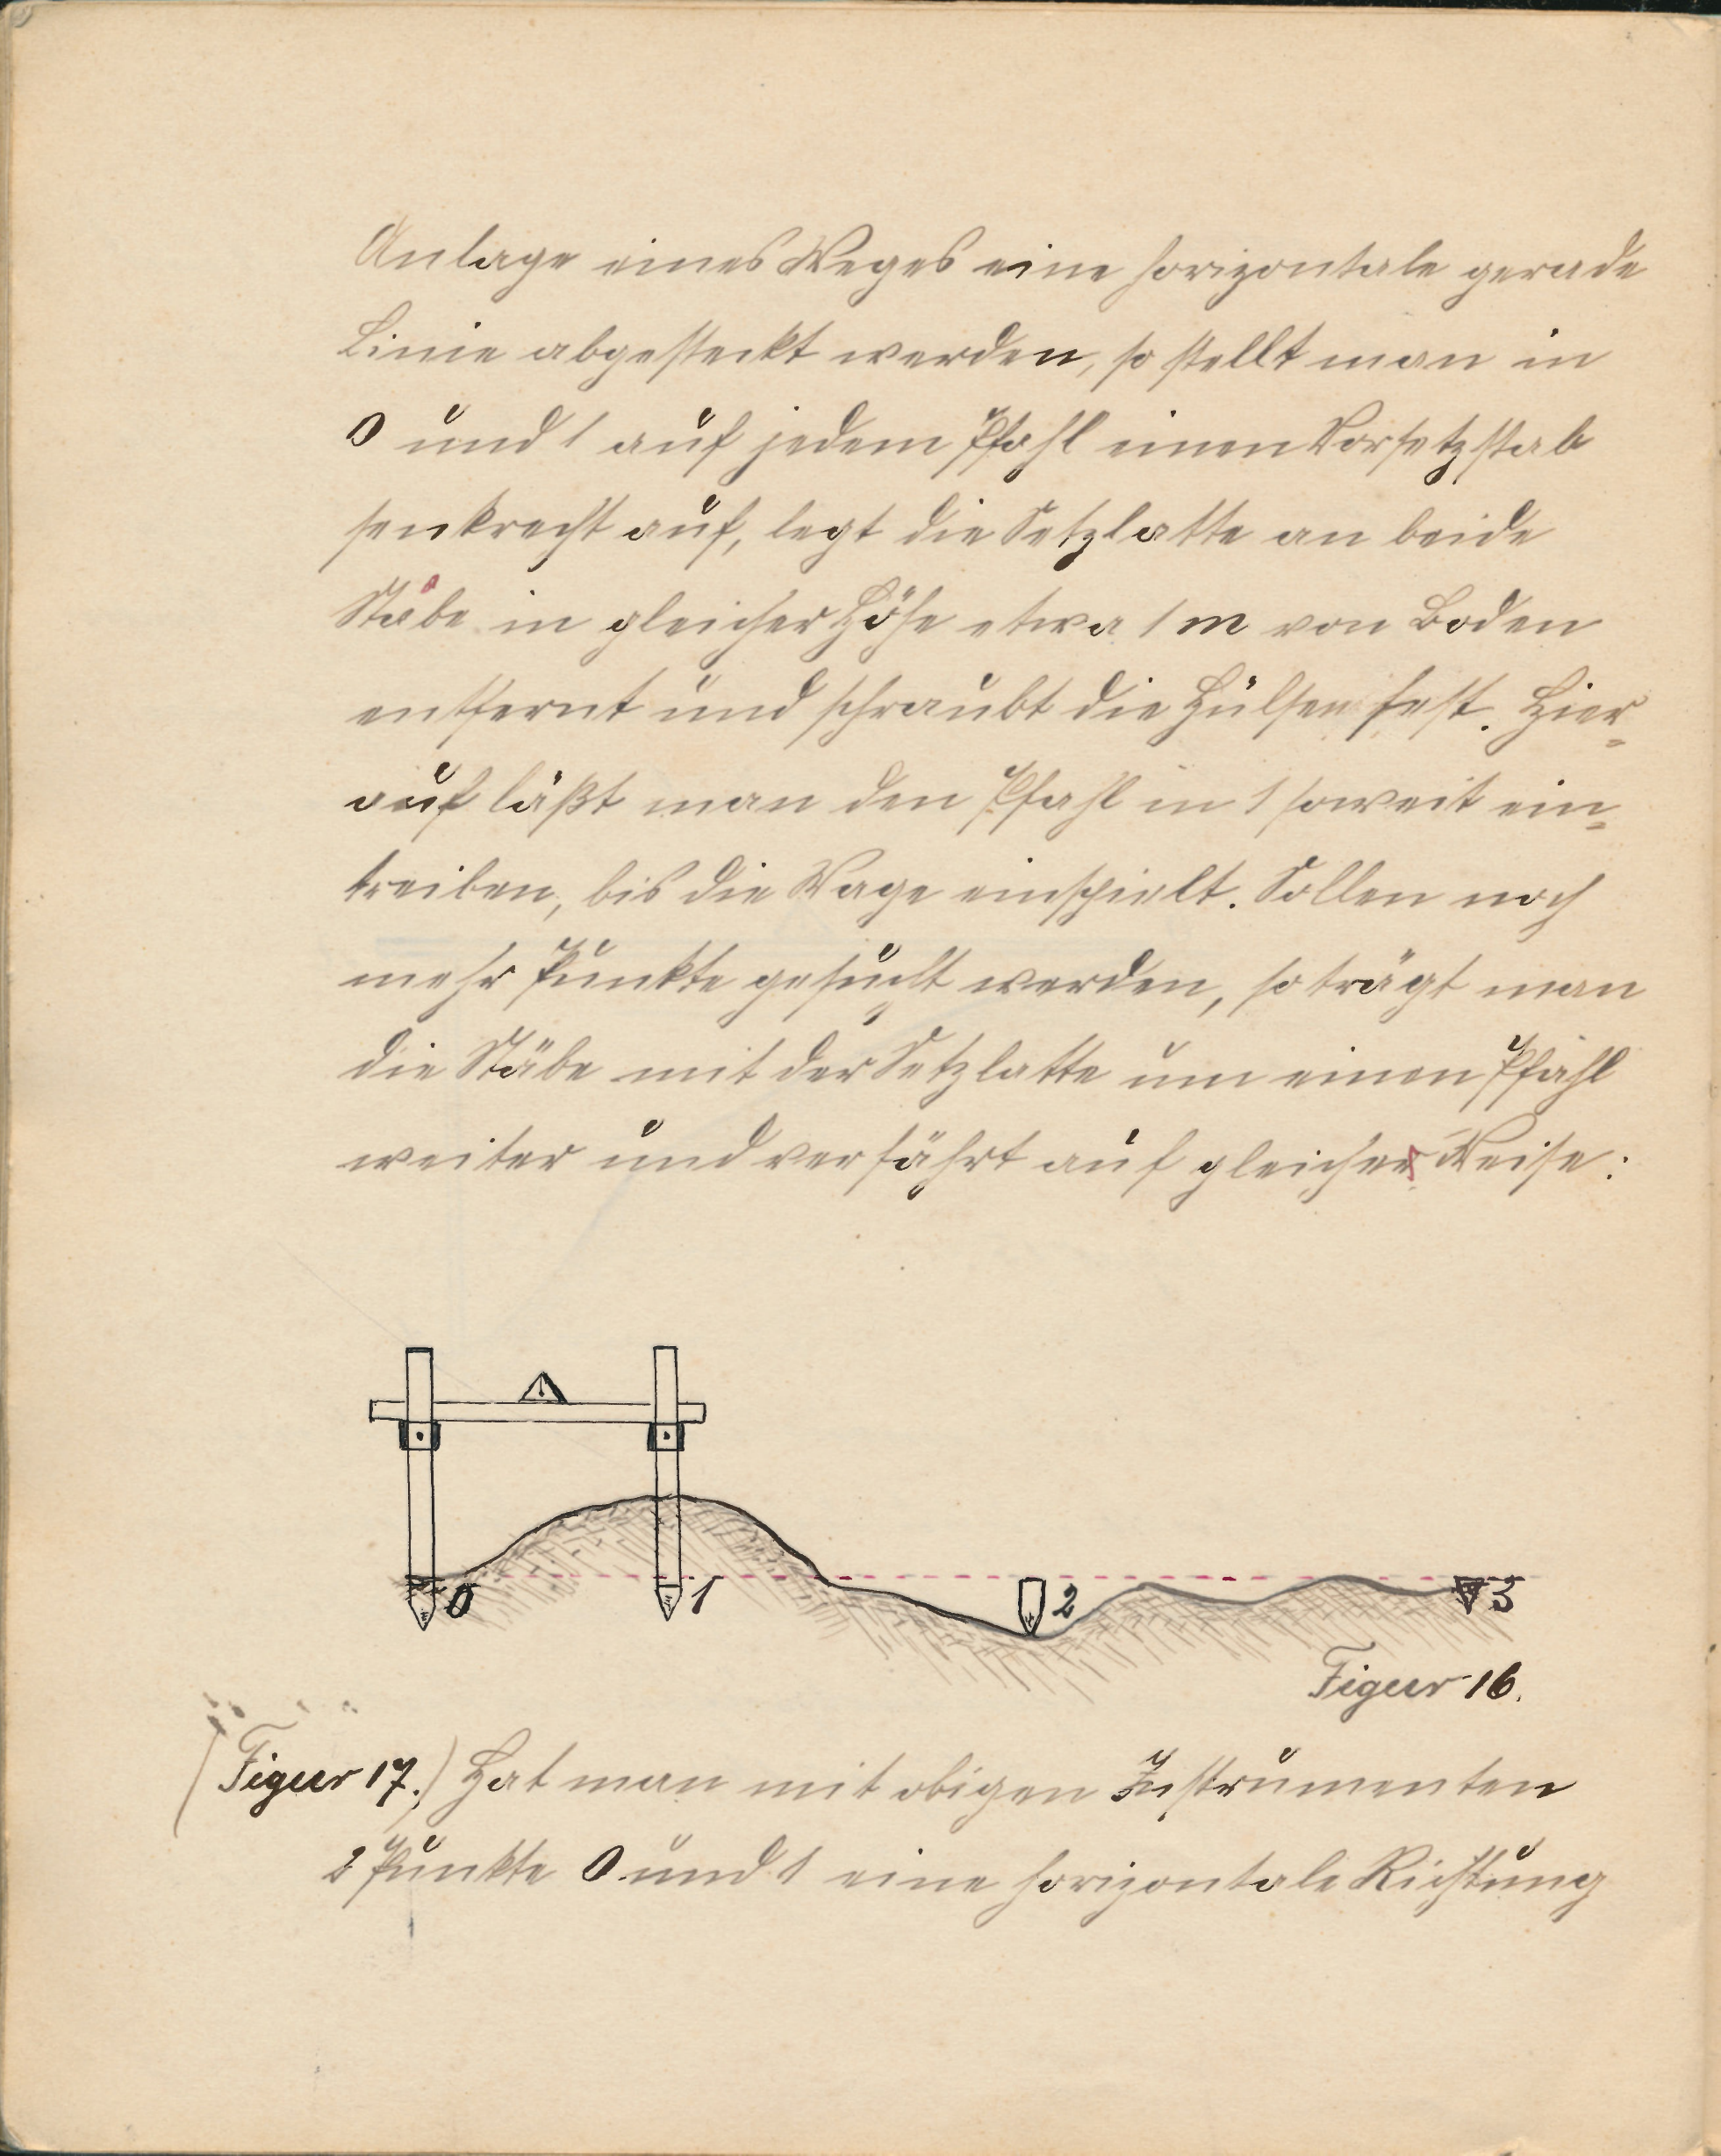 Anlage eines Weges eine horizontale gerade
Linie abgesteckt werden, so stellt man in
0 und 1 auf jedem Pfahl einen Vorsetzstab
senkrecht auf, legt die Setzlatte an beide
Stäbe in gleicher Höhe etwa 1 m von Boden
entfernt und schraubt die Hülsen fest. Hier=
auf läßt man den Pfahl in 1 soweit ein=
treiben, bis die Wage einspielt. Sollen noch
mehr Punkte gesucht werden, so trägt man
die Stäbe mit der Setzlatte um einen Pfahl
weiter und verfährt auf gleicher Weise:
0 1 2 3
Figur 16.
(Figur 17.) Hat man mit obigen Instrumenten
2 Punkte 0 und 1 eine horizontale Richtung